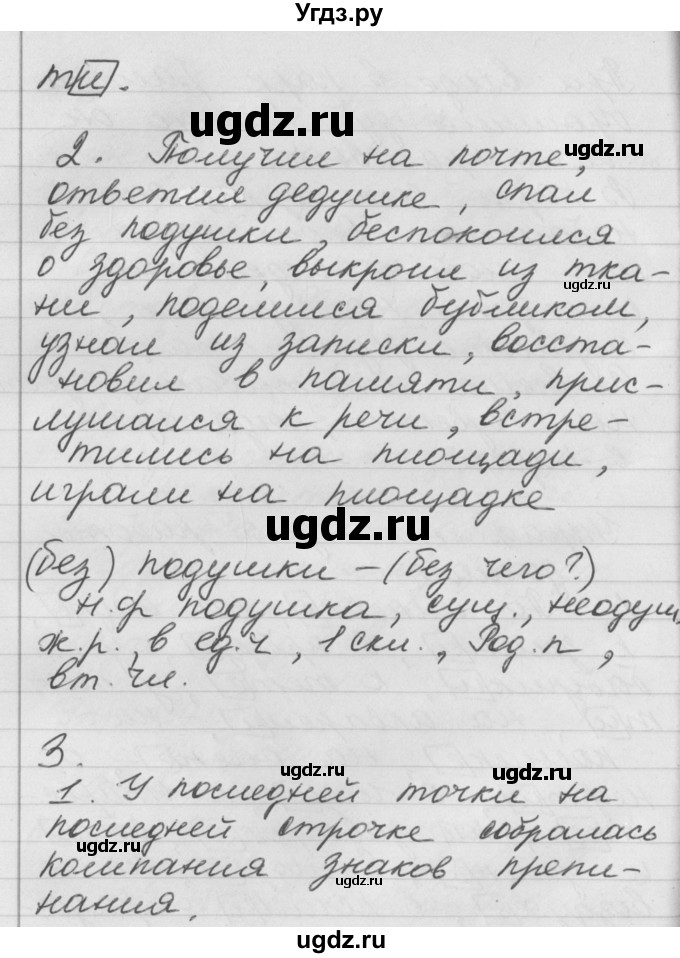 Угдз.ру
ти.
ugdz.ru
ugdz.ru
2. Получил на почте,
ответил дедушке, спал
ugdz.ru
без подушки, беспокоился
о здоровье, выкроил из тка-
ugdz.ru
ни, поделился бубликом,
узнал из записки, восста-
ugdz.ru
новил в памяти, прис-
лушался к речи, встре-
тились на площади,
играли на площадке
ugdz.ru
(без) подушки – (без чего?)
н.ф подушка, сущ., неодуш,
ж.р., в ед.ч, 1 скл., Род.п,
вт. чл.
3.
ugdz.ru
ugdz.ru
1. У последней точки на
последней строчке собралась
ugdz.ru
компания знаков препи-
ugdz.ru
нания,
ugdz.ru